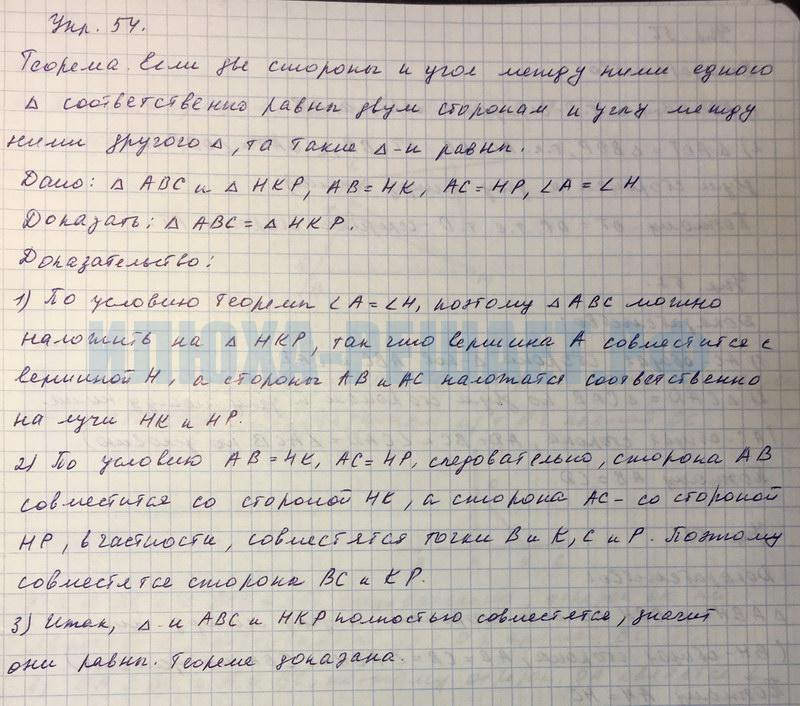 Упр. 54.
Теорема. Если две стороны и угол между ними одного
Δ соответственно равны двум сторонам и углу между
ними другого Δ, та такие Δ-и равны.
Дано: Δ ABC и Δ HKP, AB = HK, AC = HP, ∠A = ∠H
Доказать: Δ ABC = Δ HKP.
Доказательство:
1) По условию теоремы ∠A = ∠H, поэтому Δ ABC можно
наложить на Δ HKP, так что вершина A совместится с
вершиной H, а стороны AB и AC наложатся соотвественно
на лучи HK и HP.
2) По условию AB = HK, AC = HP, следовательно, сторона AB
совместится со стороной HK, а сторона AC - со стороной
HP, в частности, совместятся точки B и K, C и P. Поэтому
совместятся сторона BC и KP.
3) Итак, Δ-и ABC и HKP полностью совместятся, значит
они равны. Теорема доказана.